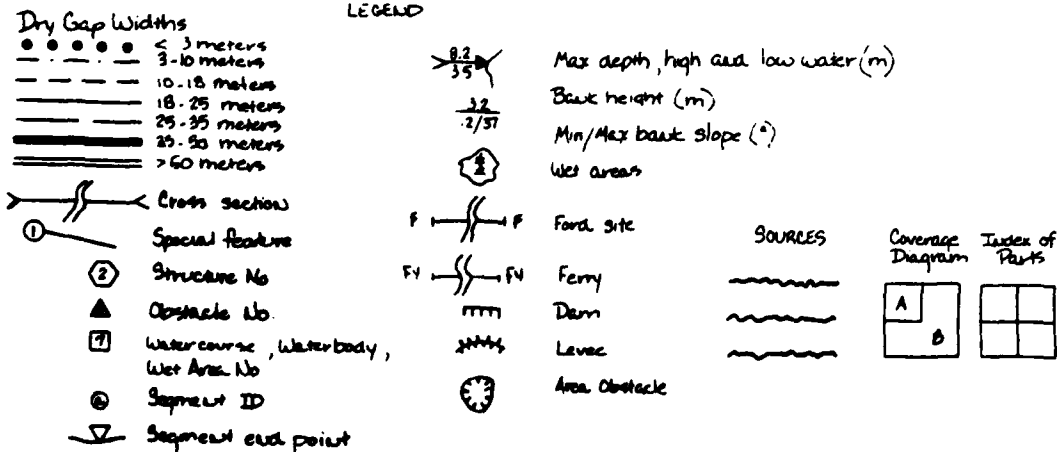 LEGEND
Dry Gap Widths
< 3 meters
3-10 meters
10-18 meters
18-25 meters
25-35 meters
35-50 meters
>60 meters
Cross section
1 Special feature
2 Structure No
Obstacle No.
Watercourse, Waterbody,
Wet Area No
Segment ID
Segment end point
8.2
35
Max depth, high and low water (m)
3.2
.2/37
Bank height (m)
Min/Max bank slope (°)
Wet areas
F F Ford site
FY FY Ferry
Dam
Levee
Area Obstacle
SOURCES
Coverage
Diagram
A
B
Index of
Parts